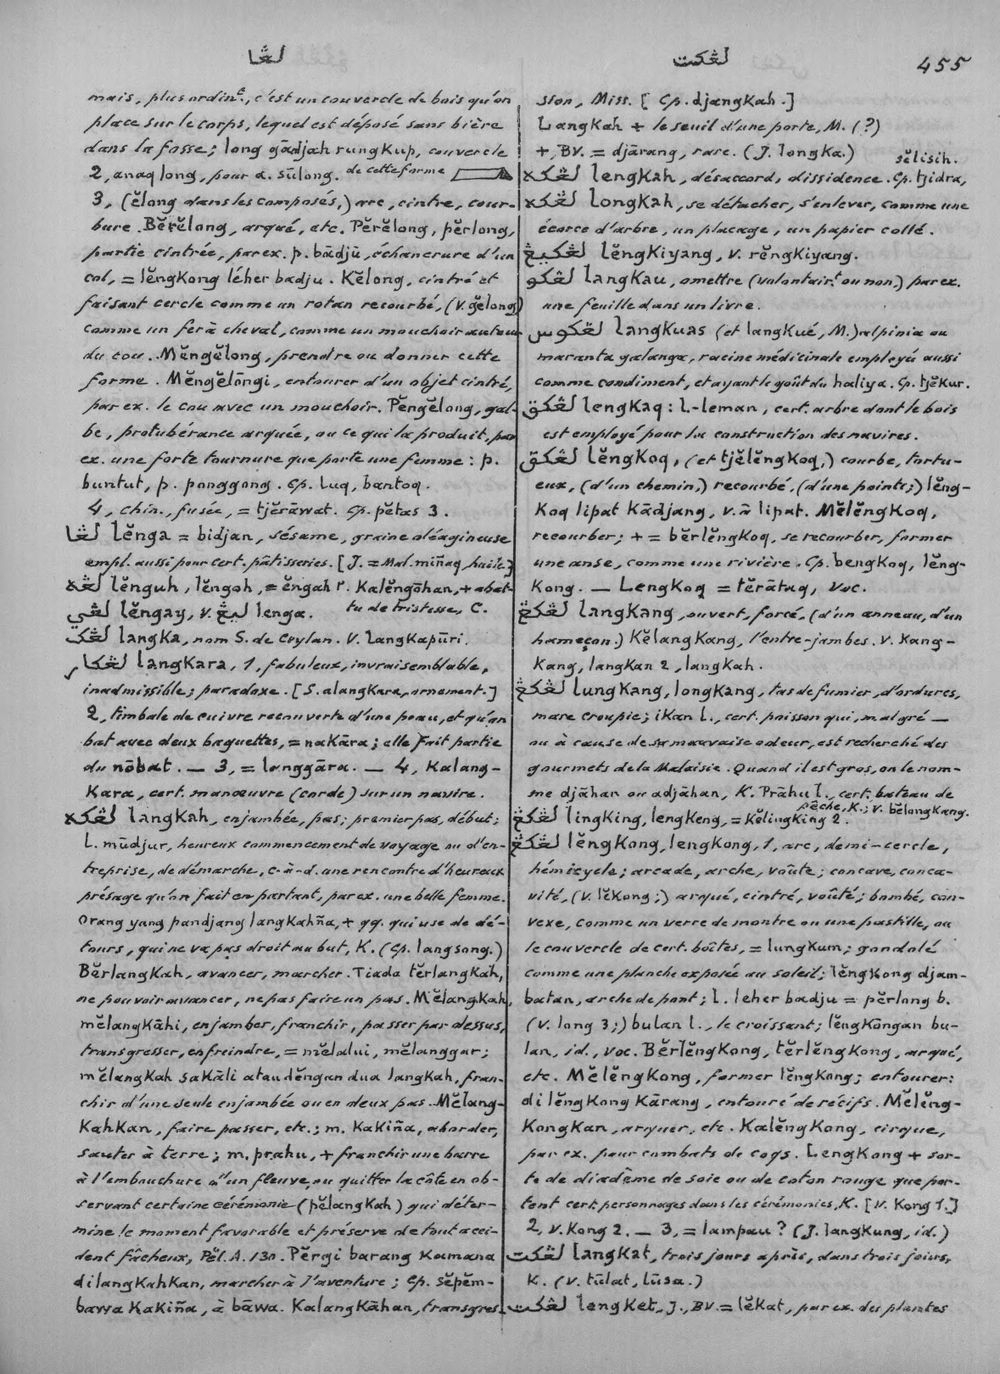 لڠا
لڠکت
455
mais, plus ordin.ᵗ, c'est un couvercle de bois qu'on
place sur le corps, lequel est déposé sans bière
dans la fosse; long gādjah rungkup, couvercle
2, anaq long, pour a. sūlong. de cette forme
3, (ĕlong dans les composés,) arc, cintre, cour-
bure. Bĕrĕlong, arqué, etc. Pĕrĕlong, pĕrlong,
partie cintrée, par ex. p. bādjū, échancrure d'un
col, = lĕngkong lēher badju. Kĕlong, cintré et
faisant cercle comme un rotan recourbé, (V. gĕlong)
comme un fer à cheval, comme un mouchoir autour
du cou. Mĕngĕlong, prendre ou donner cette
forme. Mĕngĕlōngi, entourer d'un objet cintré,
par ex. le cou avec un mouchoir. Pĕngĕlong, gal-
be, protubérance arquée, ou ce qui la produit, par
ex. une forte tournure que porte une femme: p.
buntut, p. ponggong. Cp. Luq, bantoq.
4, chin., fusée, = tjĕrāwat. Cp. pĕtas 3.
لڠا lĕnga = bidjan, sésame, graine oléagineuse
empl. aussi pour cert. pâtisseries. [J. = Mal. miñaq, huile]
لڠه lĕnguh, lĕngoh, = ĕngah r. Kalĕngōhan, + abat-
tu de tristesse, C.
لڠي lĕngay, v. ليڠ lenga.
لڠک langka, nom S. de Ceylan. V. langkapūri.
لڠکار langkara, 1, fabuleux, invraisemblable,
inadmissible; paradoxe. [S. alangkara, ornement.]
2, timbale de cuivre recouverte d'une peau, et qu'on
bat avec deux baguettes, = nakāra; elle fait partie
du nōbat. — 3, = langgāra. — 4, Kalang-
kara, cert. manœuvre (corde) sur un navire.
لڠکه langkah, enjambée, pas; premier pas, début;
l. mūdjur, heureux commencement de voyage ou d'en-
treprise, de démarche, c.-à-d. une rencontre d'heureux
présage qu'on fait en partant, par ex. une belle femme.
Orang yang pandjang langkahña, + qq. qui use de dé-
tours, qui ne va pas droit au but, K. (Cp. langsong.)
Bĕrlangkah, avancer, marcher. Tiada tĕrlangkah,
ne pouvoir avancer, ne pas faire un pas. Mĕlangkah,
mĕlangkāhi, enjamber, franchir, passer par dessus,
transgresser, enfreindre, = mĕlalui, mĕlanggar;
mĕlangkah sakāli atau dĕngan dua langkah, fran-
chir d'une seule enjambée ou en deux pas. Mĕlang-
kahkan, faire passer, etc.; m. kakiña, aborder,
sauter à terre; m. prahu, + franchir une barre
à l'embouchure d'un fleuve, ou quitter la côte en ob-
servant certaine cérémonie (pĕlangkah) qui déter-
mine le moment favorable et préserve de tout acci-
dent fâcheux, Pĕl. A. 130. Pĕrgi barang kamana
dilangkahkan, marcher à l'aventure; Cp. sĕpĕm-
bawa kakiña, à bāwa. Kalangkāhan, transgres-
sion, Miss. [Cp. djangkah.]
Langkah + le seuil d'une porte, M. (?)
+, BV. = djārang, rare. (J. longka.)
sĕlisih.
لڠکه lengkah, désaccord, dissidence. Cp. tjidra,
لڠکه longkah, se détacher, s'enlever, comme une
écorce d'arbre, un placage, un papier collé.
لڠکيڠ lĕngkiyang, v. rĕngkiyang.
لڠکو langkau, omettre (volontair.ᵗ ou non,) par ex.
une feuille dans un livre.
لڠکوس langkuas (et langkué, M.) alpinia ou
maranta galanga, racine médicinale employé aussi
comme condiment, et ayant le goût du haliya. Cp. tjĕkur.
لڠکق lengkaq: l.-leman, cert. arbre dont le bois
est employé pour la construction des navires.
لڠکق lĕngkoq, (et tjĕlĕngkoq,) courbe, tortu-
eux, (d'un chemin,) recourbé, (d'une pointe;) lĕng-
koq lipat kādjang, v. à lipat. Mĕlĕngkoq,
recourber; + = bĕrlĕngkoq, se recourber, former
une anse, comme une rivière. Cp. bengkoq, lĕng-
kong. — Lengkoq = tĕrātaq, voc.
لڠکڠ langkang, ouvert, forcé, (d'un anneau, d'un
hameçon.) Kĕlangkang, l'entre-jambes. V. kang-
kang, langkan 2, langkah.
لڠکڠ lungkang, longkang, tas de fumier, d'ordures,
mare croupie; ikan l., cert. poisson qui, malgré —
ou à cause de sa mauvaise odeur, est recherché des
gourmets de la Malaisie. Quand il est gros, on le nom-
me djāhan ou adjāhan, K. Prāhu l., cert. bateau de
pêche, K.; v. bĕlangkang.
لڠکڠ lingking, lengkeng, = kĕlingking 2.
لڠکڠ lĕngkong, lengkong, 1, arc, demi-cercle,
hémicycle; arcade, arche, voûte; concave, conca-
vité, (v. lĕkong;) arqué, cintré, voûté; bombé, con-
vexe, comme un verre de montre ou une pastille, ou
le couvercle de cert. boîtes, = lungkum; gondolé
comme une planche exposée au soleil; lĕngkong djam-
batan, arche de pont; l. leher badju = pĕrlong b.
(v. long 3;) bulan l., le croissant; lĕngkōngan bu-
lan, id., voc. Bĕrlĕngkong, tĕrlĕngkong, arqué,
etc. Mĕlĕngkong, former lĕngkong; entourer:
di lĕngkong kārang, entouré de récifs. Mĕlĕng-
kongkan, arquer, etc. Kalĕngkong, cirque,
par ex. pour combats de coqs. Lengkong + sor-
te de diadème de soie ou de coton rouge que por-
tent cert. personnages dans les cérémonies, K. [V. kong 1.]
2, v. kong 2. — 3, = lampau? (J. langkung, id.)
لڠکت langkat, trois jours après, dans trois jours,
K. (v. tūlat, lūsa.)
لڠکت lengket, J., BV. = lĕkat, par ex. des plantes